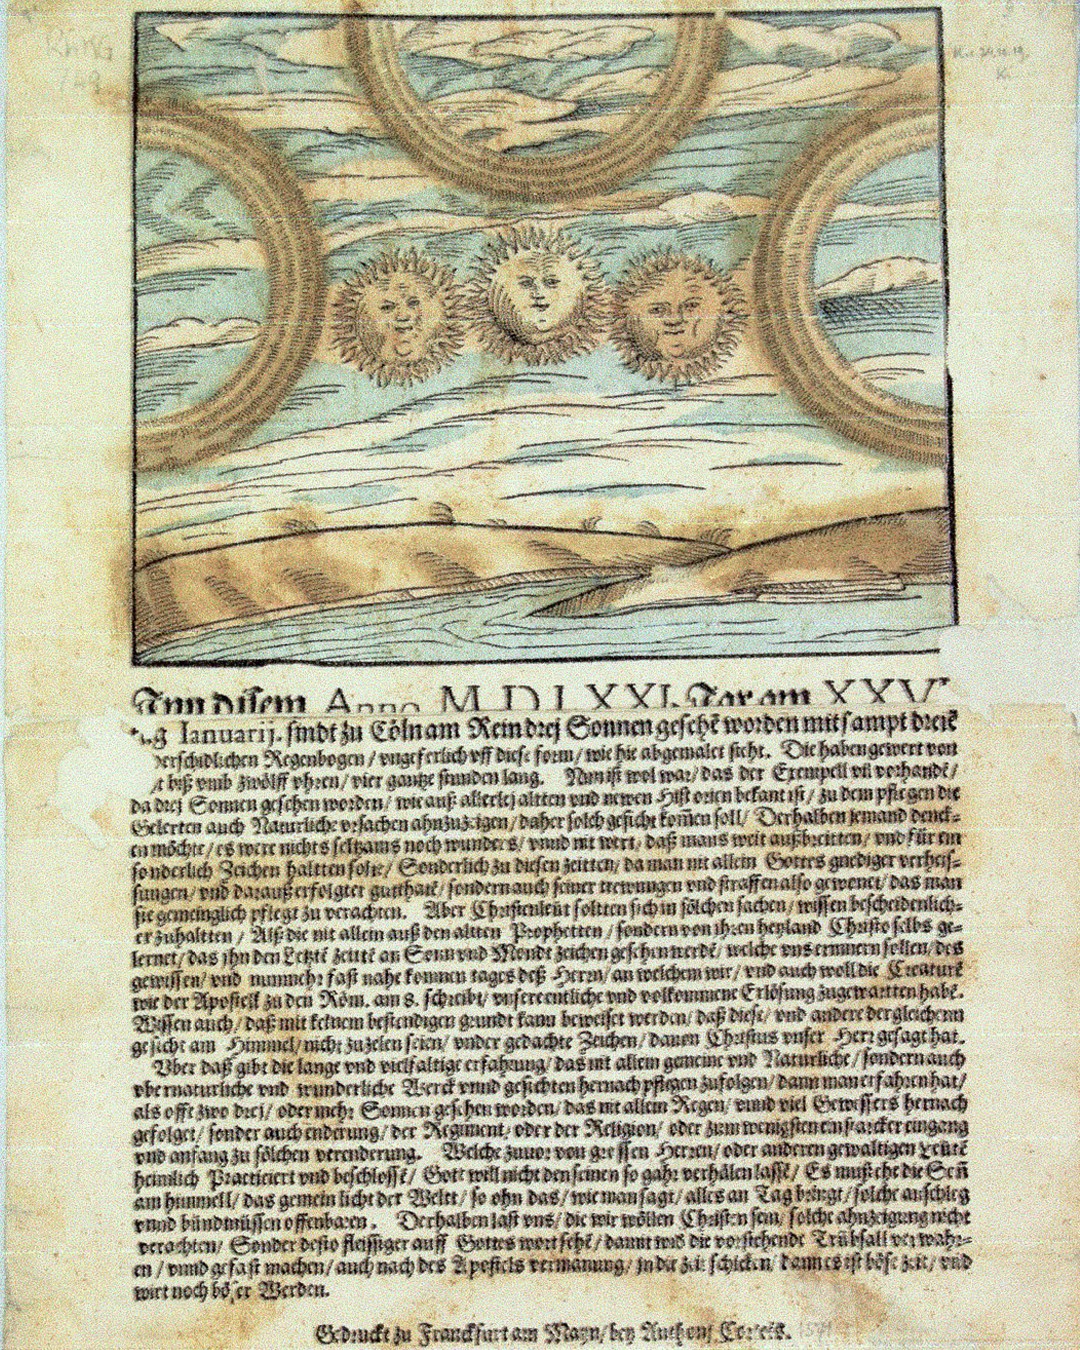 Inn disem Anno M D LXXI. Jar am XXV
Ianuarij. sindt zu Cöln am Rein drej Sonnen gesehē worden mit sampt dreiē
verschidlichen Regenbogen / vngeferlich vff diese form / wie hie abgemalet sicht. Die haben gewert von
biß vmb zwölff vhren / vier gantze stunden lang. Nun ist wol war / das der Exempell vil vorhandē /
da drej Sonnen gesehen worden / wie auß allerlej altten vnd newen Historien bekant ist / zu dem pflegen die
Gelerten auch Naturliche vrsachen ahnzuzeigen / daher solch gesicht komen soll / Derhalben jemand denck-
en möchte / es were nichts seltzams noch wunders / vnnd nit wert / daß mans weit außbreitten / vnd für ein
sonderlich Zeichen haltten solte / Sonderlich zu diesen zeitten / da man nit allein Gottes gnediger verheis-
sungen / vnd darauß erfolgter gutthatē / sondern auch seiner trewungen vnd straffen also gewenet / das man
sie gemeinglich pflegt zu verachten. Aber Christenleüt soltten sich in sölchen sachen / wissen bescheidenlich-
er zuhaltten / Alß die nit allein auß den altten Prophetten / sondern von ihren heyland Christo selbs ge-
lernet / das ihn den Letztē zeitē an Sonn vnd Mondt zeichen gesehen werdē / welche vns erinnern sollen / des
gewissen / vnd nunmehr fast nahe komnen tages deß Herrn / an welchem wir / vnd auch woll die Creaturē
wie der Apostell zu den Röm. am 8. schreibt / vnsere entliche vnd volkommene Erlösung zugewartten habē.
Wissen auch / daß mit keinem bestendigen grundt kann beweiset werden / daß diese / vnd andere dergleichenn
gesicht am Himmel / nicht zuzelen seien / vnder gedachte Zeichen / dauon Christus vnser Herr gesagt hat.
Vber daß gibt die lange vnd vielfaltige erfahrung / das nit allein gemeine vnd Naturliche / sondern auch
vbernaturliche vnd wunderliche Werck vnnd gesichten hernach pflegen zufolgen / dann man erfahren hat /
als offt zwo drej / oder mehr Sonnen gesehen worden / das nit allein Regen / vnnd viel Gewessers hernach
gefolget / sonder auch enderung / der Regiment / oder der Religion / oder zum wenigsten ein starcker eingang
vnd anfang zu sölchen verenderung. Welche zuuor von grossen Herren / oder anderen gewaltigen Leütē
heimlich Practiciert vnd beschlossē / Gott will nicht den seinen so gahr verhälen lassē / Es muß eht die Soñ
am himmell / das gemein licht der Weltt / so ohn das / wie man sagt / alles an Tag bringt / solche anschleg
vnnd bündnüssen offenbaren. Derhalben last vns / die wir wöllen Christen sein / solche ahnzeigung nicht
verachten / Sonder desto fleissiger auff Gottes wort sehē / damit wid die vorstehende Trübsall verwahr-
en / vnnd gefast machen / auch nach des Apostels vermanung / in die zeit schicken / dann es ist böse zeit / vnd
wirt noch böser Werden.
Gedruckt zu Franckfurt am Mayn / bey Anthonj Corteis.